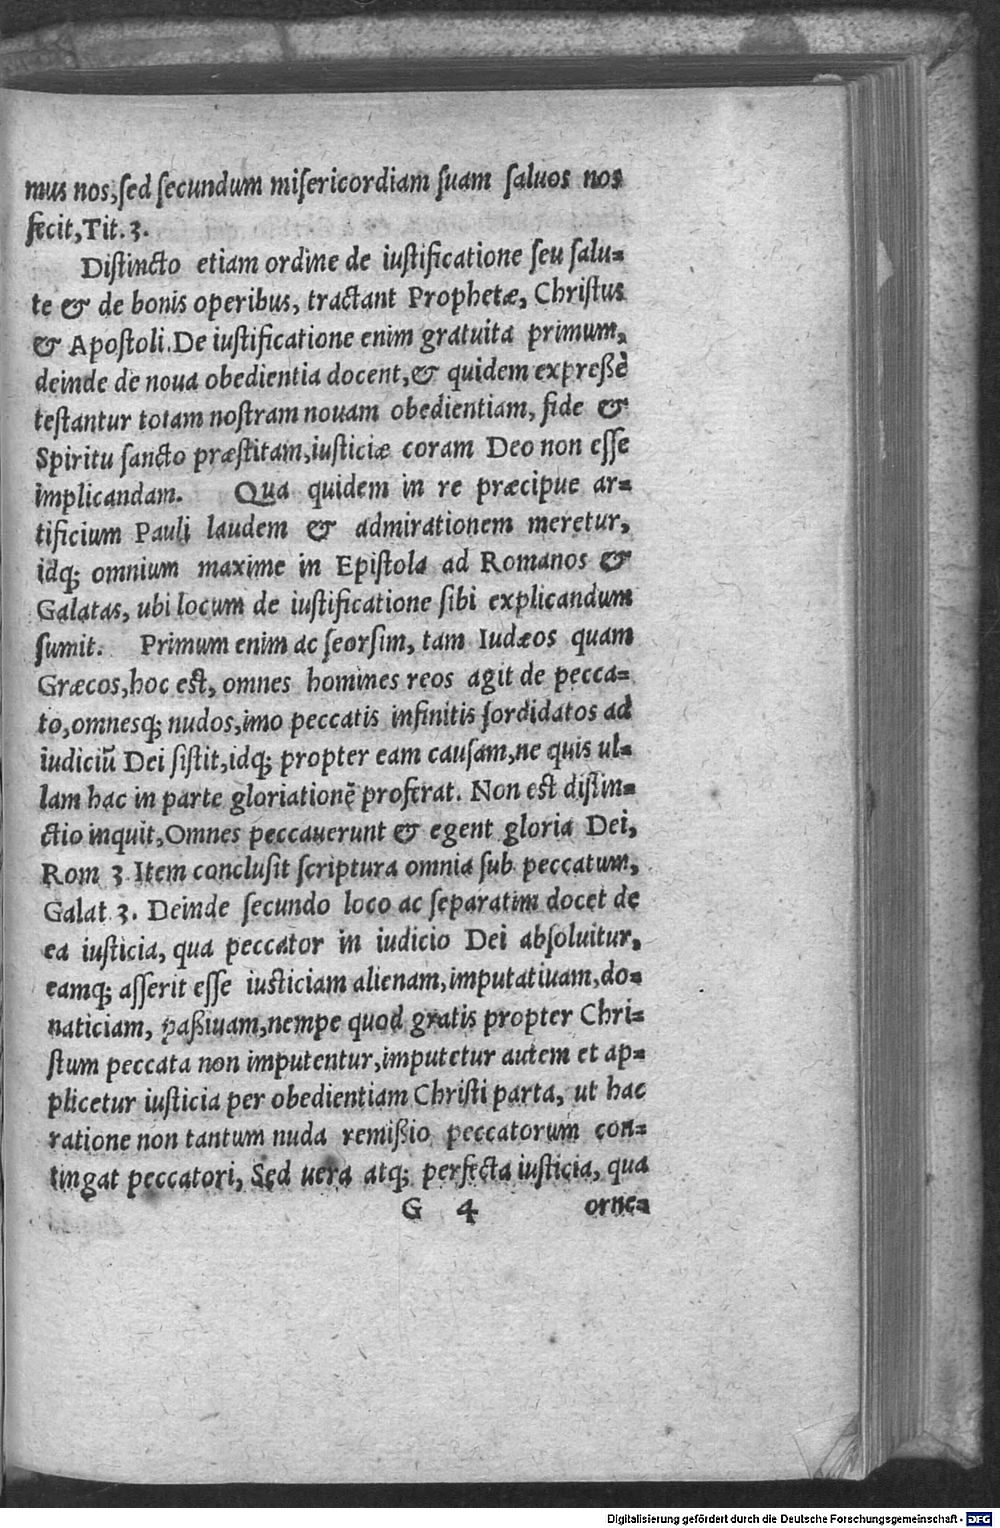 mus nos, sed secundum misericordiam suam saluos nos
fecit, Tit. 3.
Distincto etiam ordine de iustificatione seu salu-
te & de bonis operibus, tractant Prophetæ, Christus
& Apostoli. De iustificatione enim gratuita primum,
deinde de noua obedientia docent, & quidem expreßè
testantur totam nostram nouam obedientiam, fide &
Spiritu sancto præstitam, iusticiæ coram Deo non esse
implicandam. Qua quidem in re præcipue ar-
tificium Pauli laudem & admirationem meretur,
idq; omnium maxime in Epistola ad Romanos &
Galatas, ubi locum de iustificatione sibi explicandum
sumit. Primum enim ac seorsim, tam Iudæos quam
Græcos, hoc est, omnes homines reos agit de pecca-
to, omnesq; nudos, imo peccatis infinitis sordidatos ad
iudiciū Dei sistit, idq; propter eam causam, ne quis ul-
lam hac in parte gloriationē proferat. Non est distin-
ctio inquit, Omnes peccauerunt & egent gloria Dei,
Rom 3 Item conclusit scriptura omnia sub peccatum,
Galat 3. Deinde secundo loco ac separatim docet de
ea iusticia, qua peccator in iudicio Dei absoluitur,
eamq; asserit esse iusticiam alienam, imputatiuam, do-
naticiam, paßiuam, nempe quod gratis propter Chri-
stum peccata non imputentur, imputetur autem et ap-
plicetur iusticia per obedientiam Christi parta, ut hac
ratione non tantum nuda remißio peccatorum con-
tingat peccatori, Sed uera atq; perfecta iusticia, qua
G 4 orne-
Digitalisierung gefördert durch die Deutsche Forschungsgemeinschaft - DFG